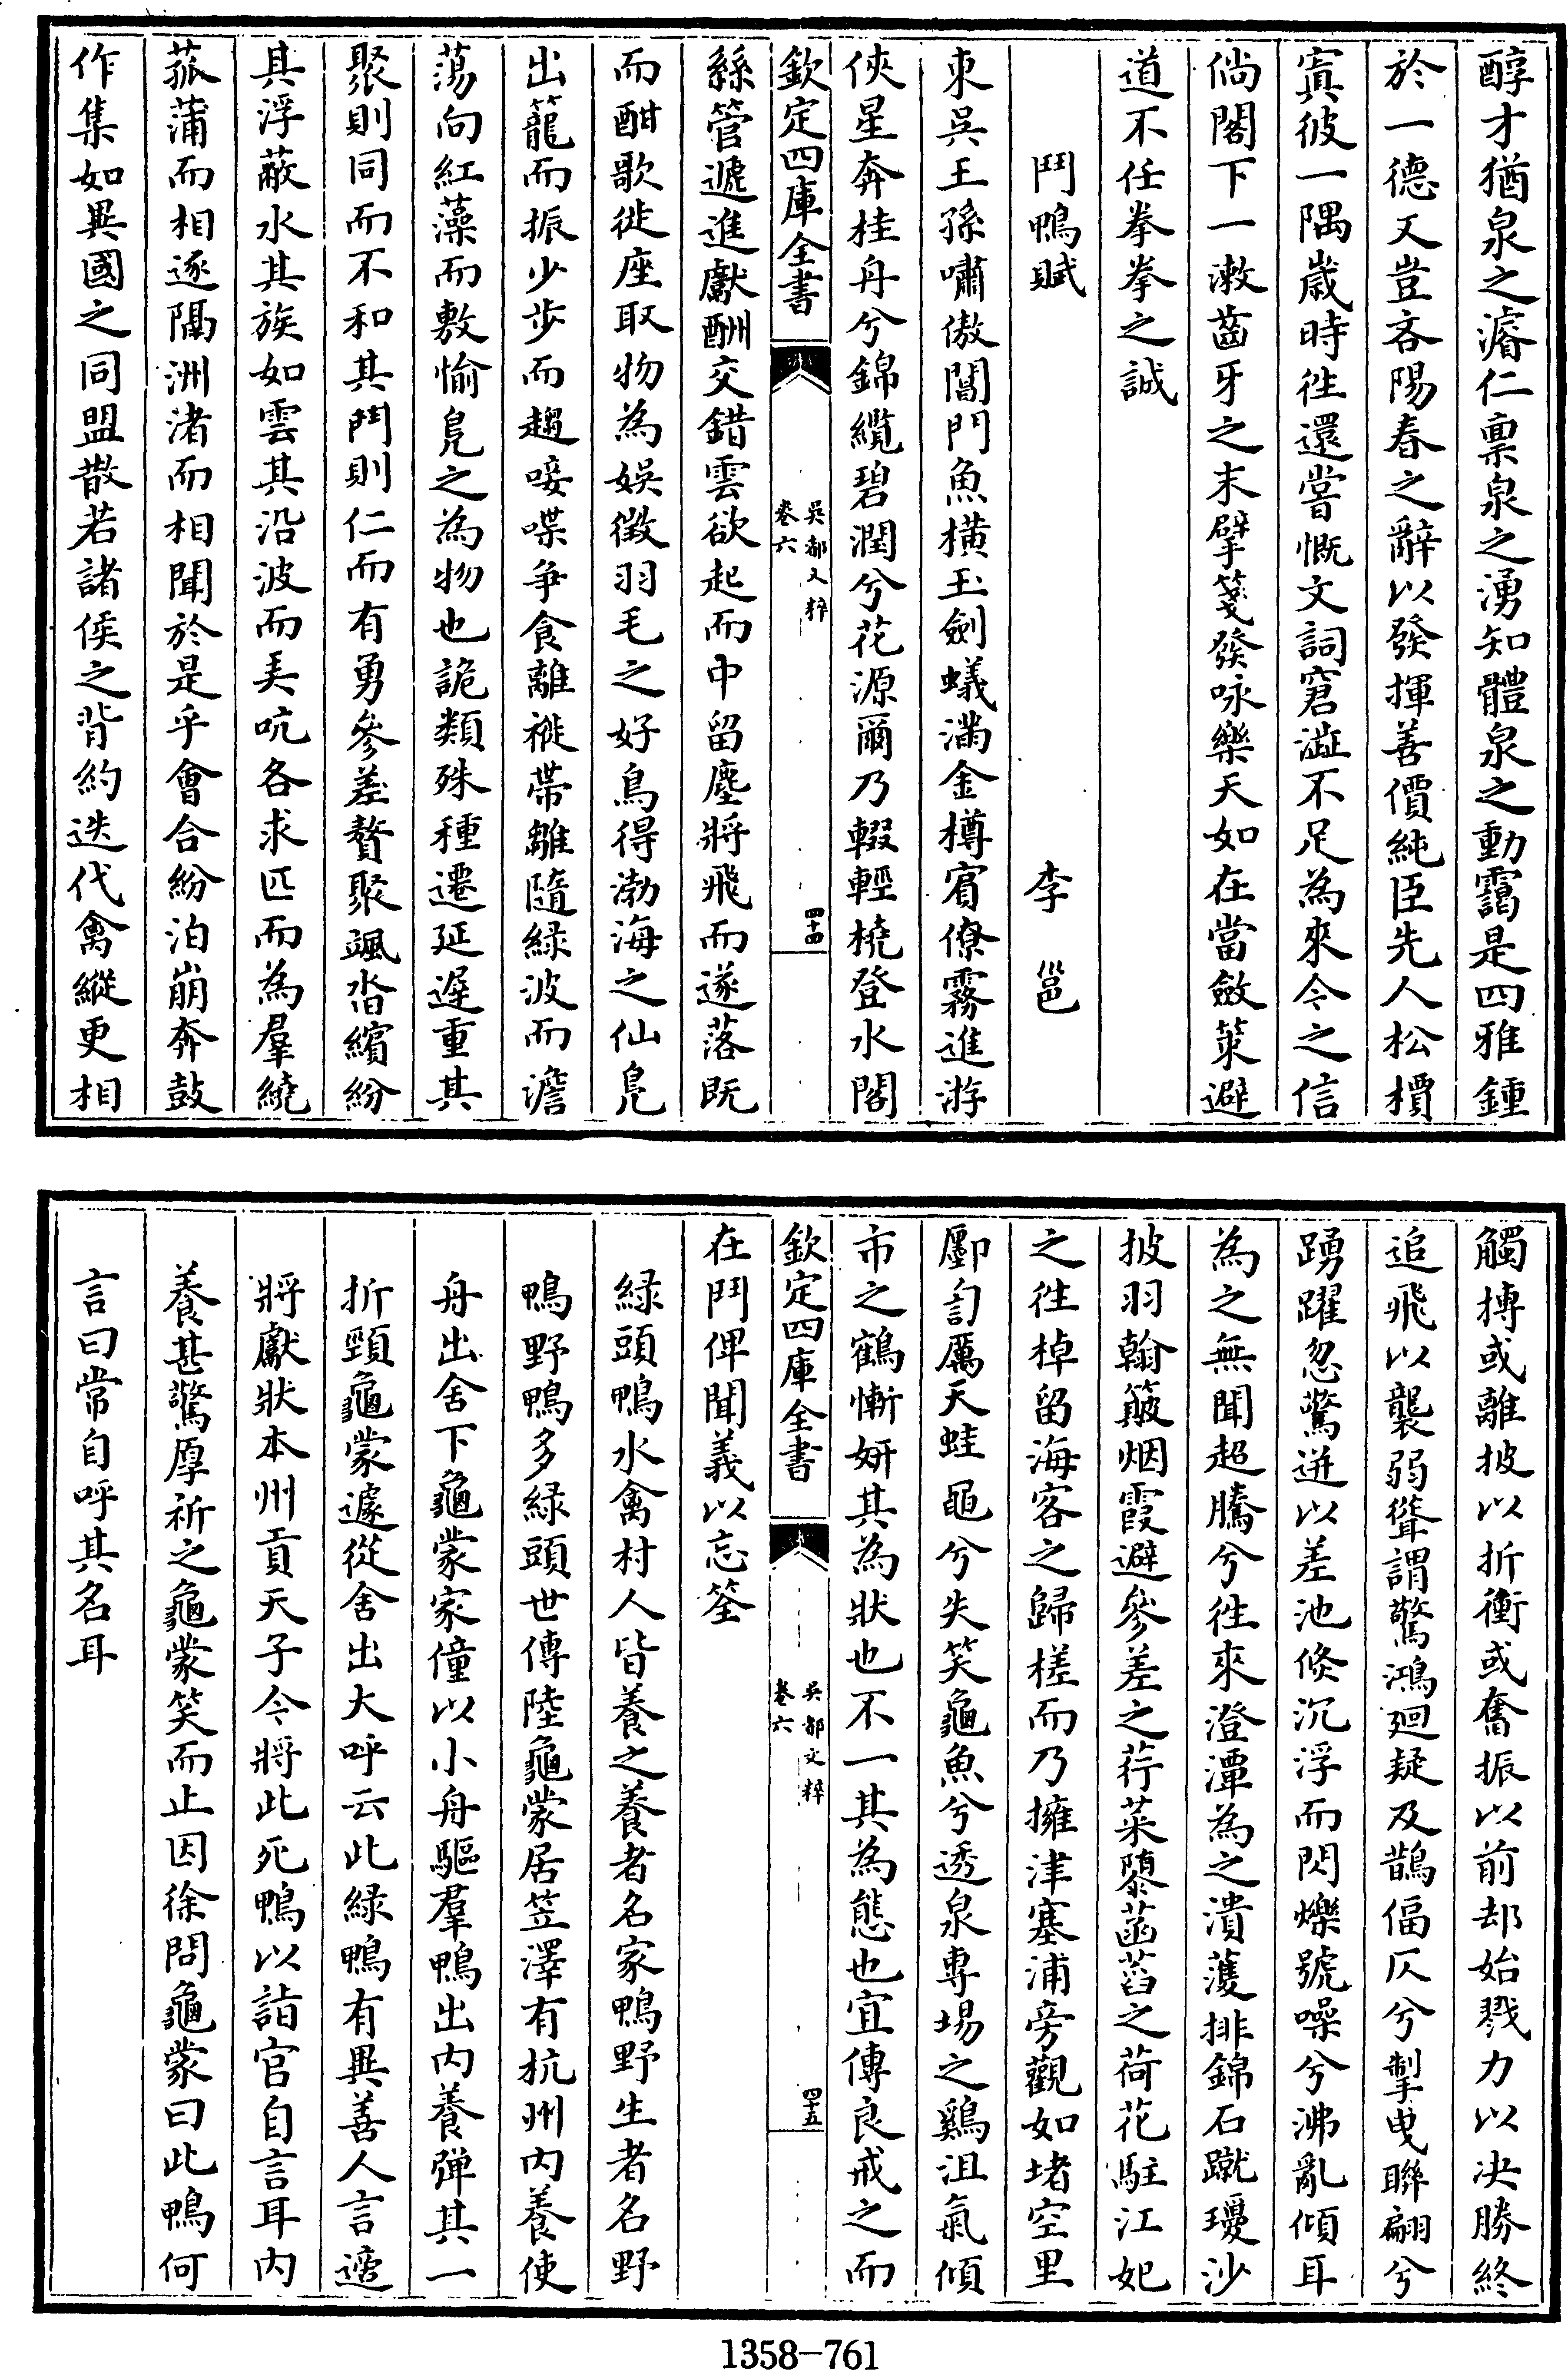 醇才猶泉之濬仁稟泉之湧知體泉之動靄是四雅鍾
於一德又豈吝陽春之辭以發揮善價純臣先人松檟
寘彼一隅歲時徃還嘗慨文詞窘澁不足為來今之信
倘閣下一漱齒牙之末擘箋發咏樂天如在當斂䇿避
道不任拳拳之誠
鬥鴨賦　李邕
東吳王孫嘯傲閶門魚橫玉劍蟻滿金樽賓僚霧進游
俠星奔桂舟兮錦纜碧潤兮花源爾乃輟輕橈登水閣
欽定四庫全書
吳都文粹
卷六
四十四
絲管遞進獻酬交錯雲欲起而中留塵將飛而遂落既
而酣歌徙座取物為娛徵羽毛之好鳥得渤海之仙鳧
出籠而振少步而趨唼喋爭食離褷帶雛隨綠波而澹
蕩向紅藻而敷愉鳧之為物也詭類殊種遷延遲重其
聚則同而不和其鬥則仁而有勇參差贅聚颯沓繽紛
其浮蔽水其族如雲其沿波而美吭各求匹而為羣繞
菰蒲而相逐隔洲渚而相聞於是乎會合紛泊崩奔鼓
作集如異國之同盟散若諸侯之背約迭代禽縱更相
觸搏或離披以折衝或奮振以前却始戮力以决勝終
追飛以襲弱聳謂驚鴻廻疑及鵲偪仄兮掣曵聯翩兮
踴躍忽驚迸以差池倐沉浮而閃爍號噪兮沸亂傾耳
為之無聞超騰兮徃來澄潭為之潰蒦排錦石蹴瓊沙
披羽翰簸烟霞避參差之荇菜隳菡萏之荷花駐江妃
之徃棹留海客之歸槎而乃擁津塞浦旁觀如堵空里
鄽訇厲天蛙黽兮失笑龜魚兮透泉專場之鷄沮氣傾
市之鶴慚妍其為狀也不一其為態也宜傳良戒之而
欽定四庫全書
吳都文粹
卷六
四十五
在鬥俾聞義以忘筌
綠頭鴨水禽村人皆養之養者名家鴨野生者名野
鴨野鴨多綠頭世傳陸龜蒙居笠澤有杭州内養使
舟出舍下龜蒙家僮以小舟驅羣鴨出内養彈其一
折頸龜蒙遽從舍出大呼云此綠鴨有異善人言適
將獻狀本州貢天子今將此死鴨以詣官自言耳内
養甚驚厚祈之龜蒙笑而止因徐問龜蒙曰此鴨何
言曰常自呼其名耳
1358-761